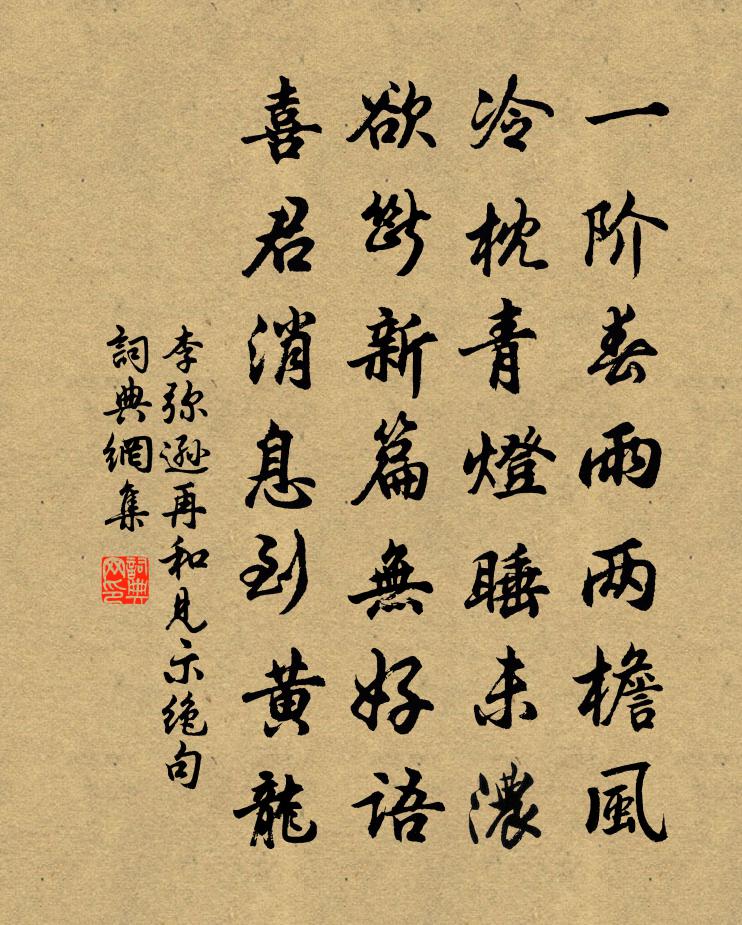 一阶春雨两檐風
冷枕青燈睡未濃
欲斷新篇無好語
喜君消息到黄龍
李弥遜再和见示絶句
詞典網集
詞典
网印